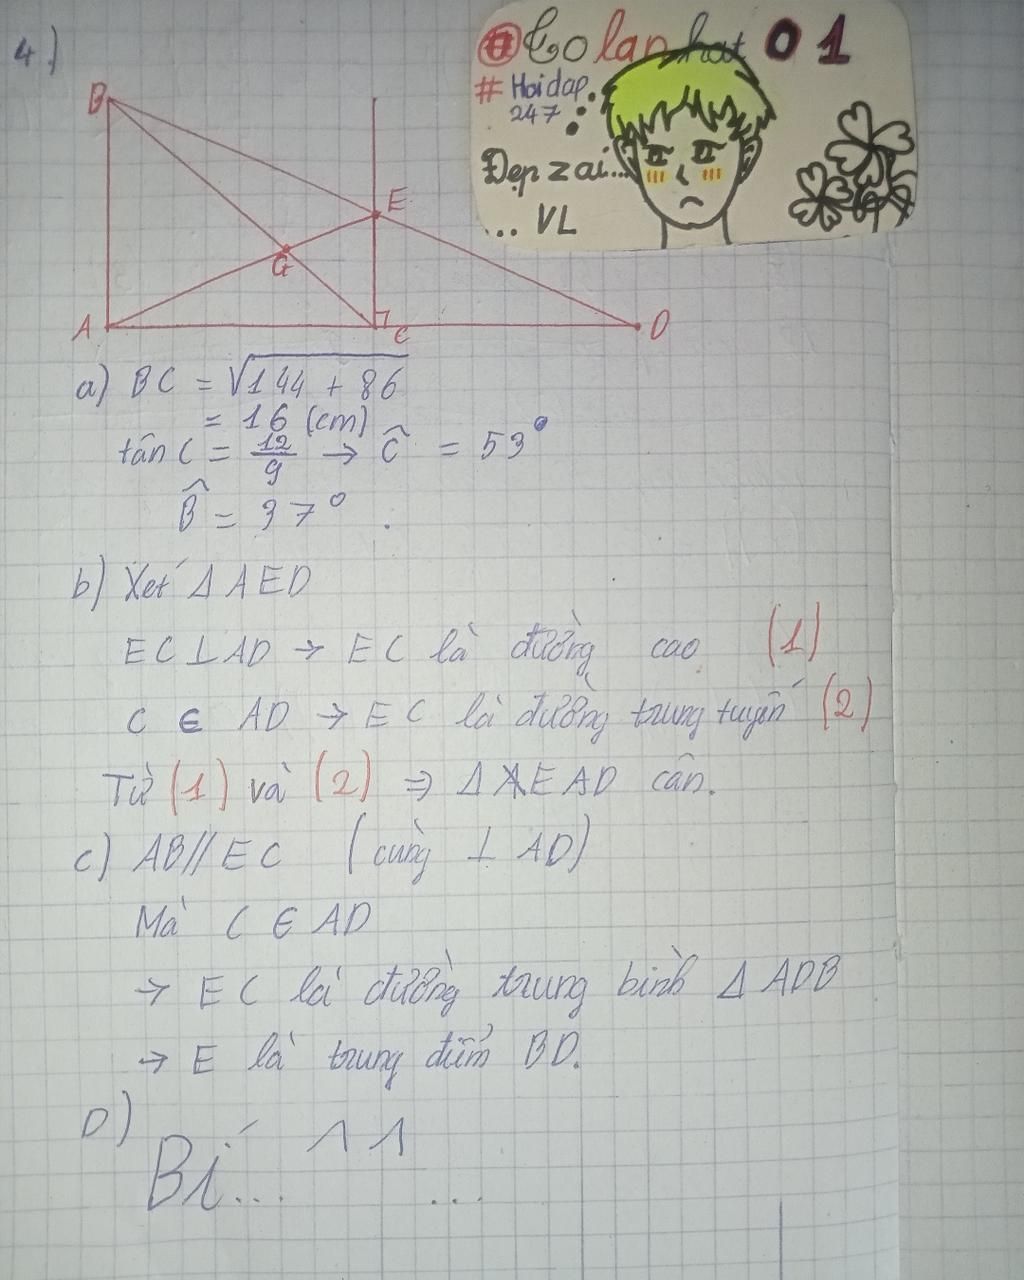 4.)
@Go lan hat 01
# Hoidap
247
Đẹp zai...
... VL
B
E
G
A
C
D
a) BC = √144 + 86
= 16 (cm)
tan C = 12/9 → Ĉ = 53°
B̂ = 37° .
b) Xét Δ AED
EC ⊥ AD → EC là đường cao (1)
C ∈ AD → EC là đường trung tuyến (2)
Từ (1) và (2) ⇒ Δ EAD cân.
c) AB // EC (cùng ⊥ AD)
Mà C ∈ AD
→ EC là đường trung bình Δ ADB
→ E là trung điểm BD.
D)
Bí... ^^ ...